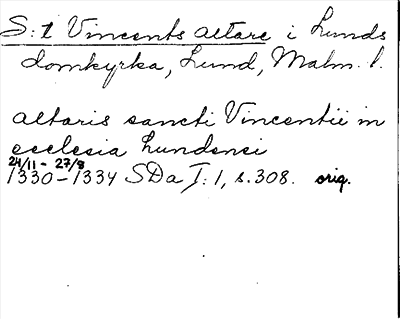 S:t Vincents altare i Lunds
domkyrka, Lund, Malm. l.
altaris sancti Vincentii in
ecclesia Lundensi
24/11 - 27/8
1330-1334 SDa I:1, s.308. orig.